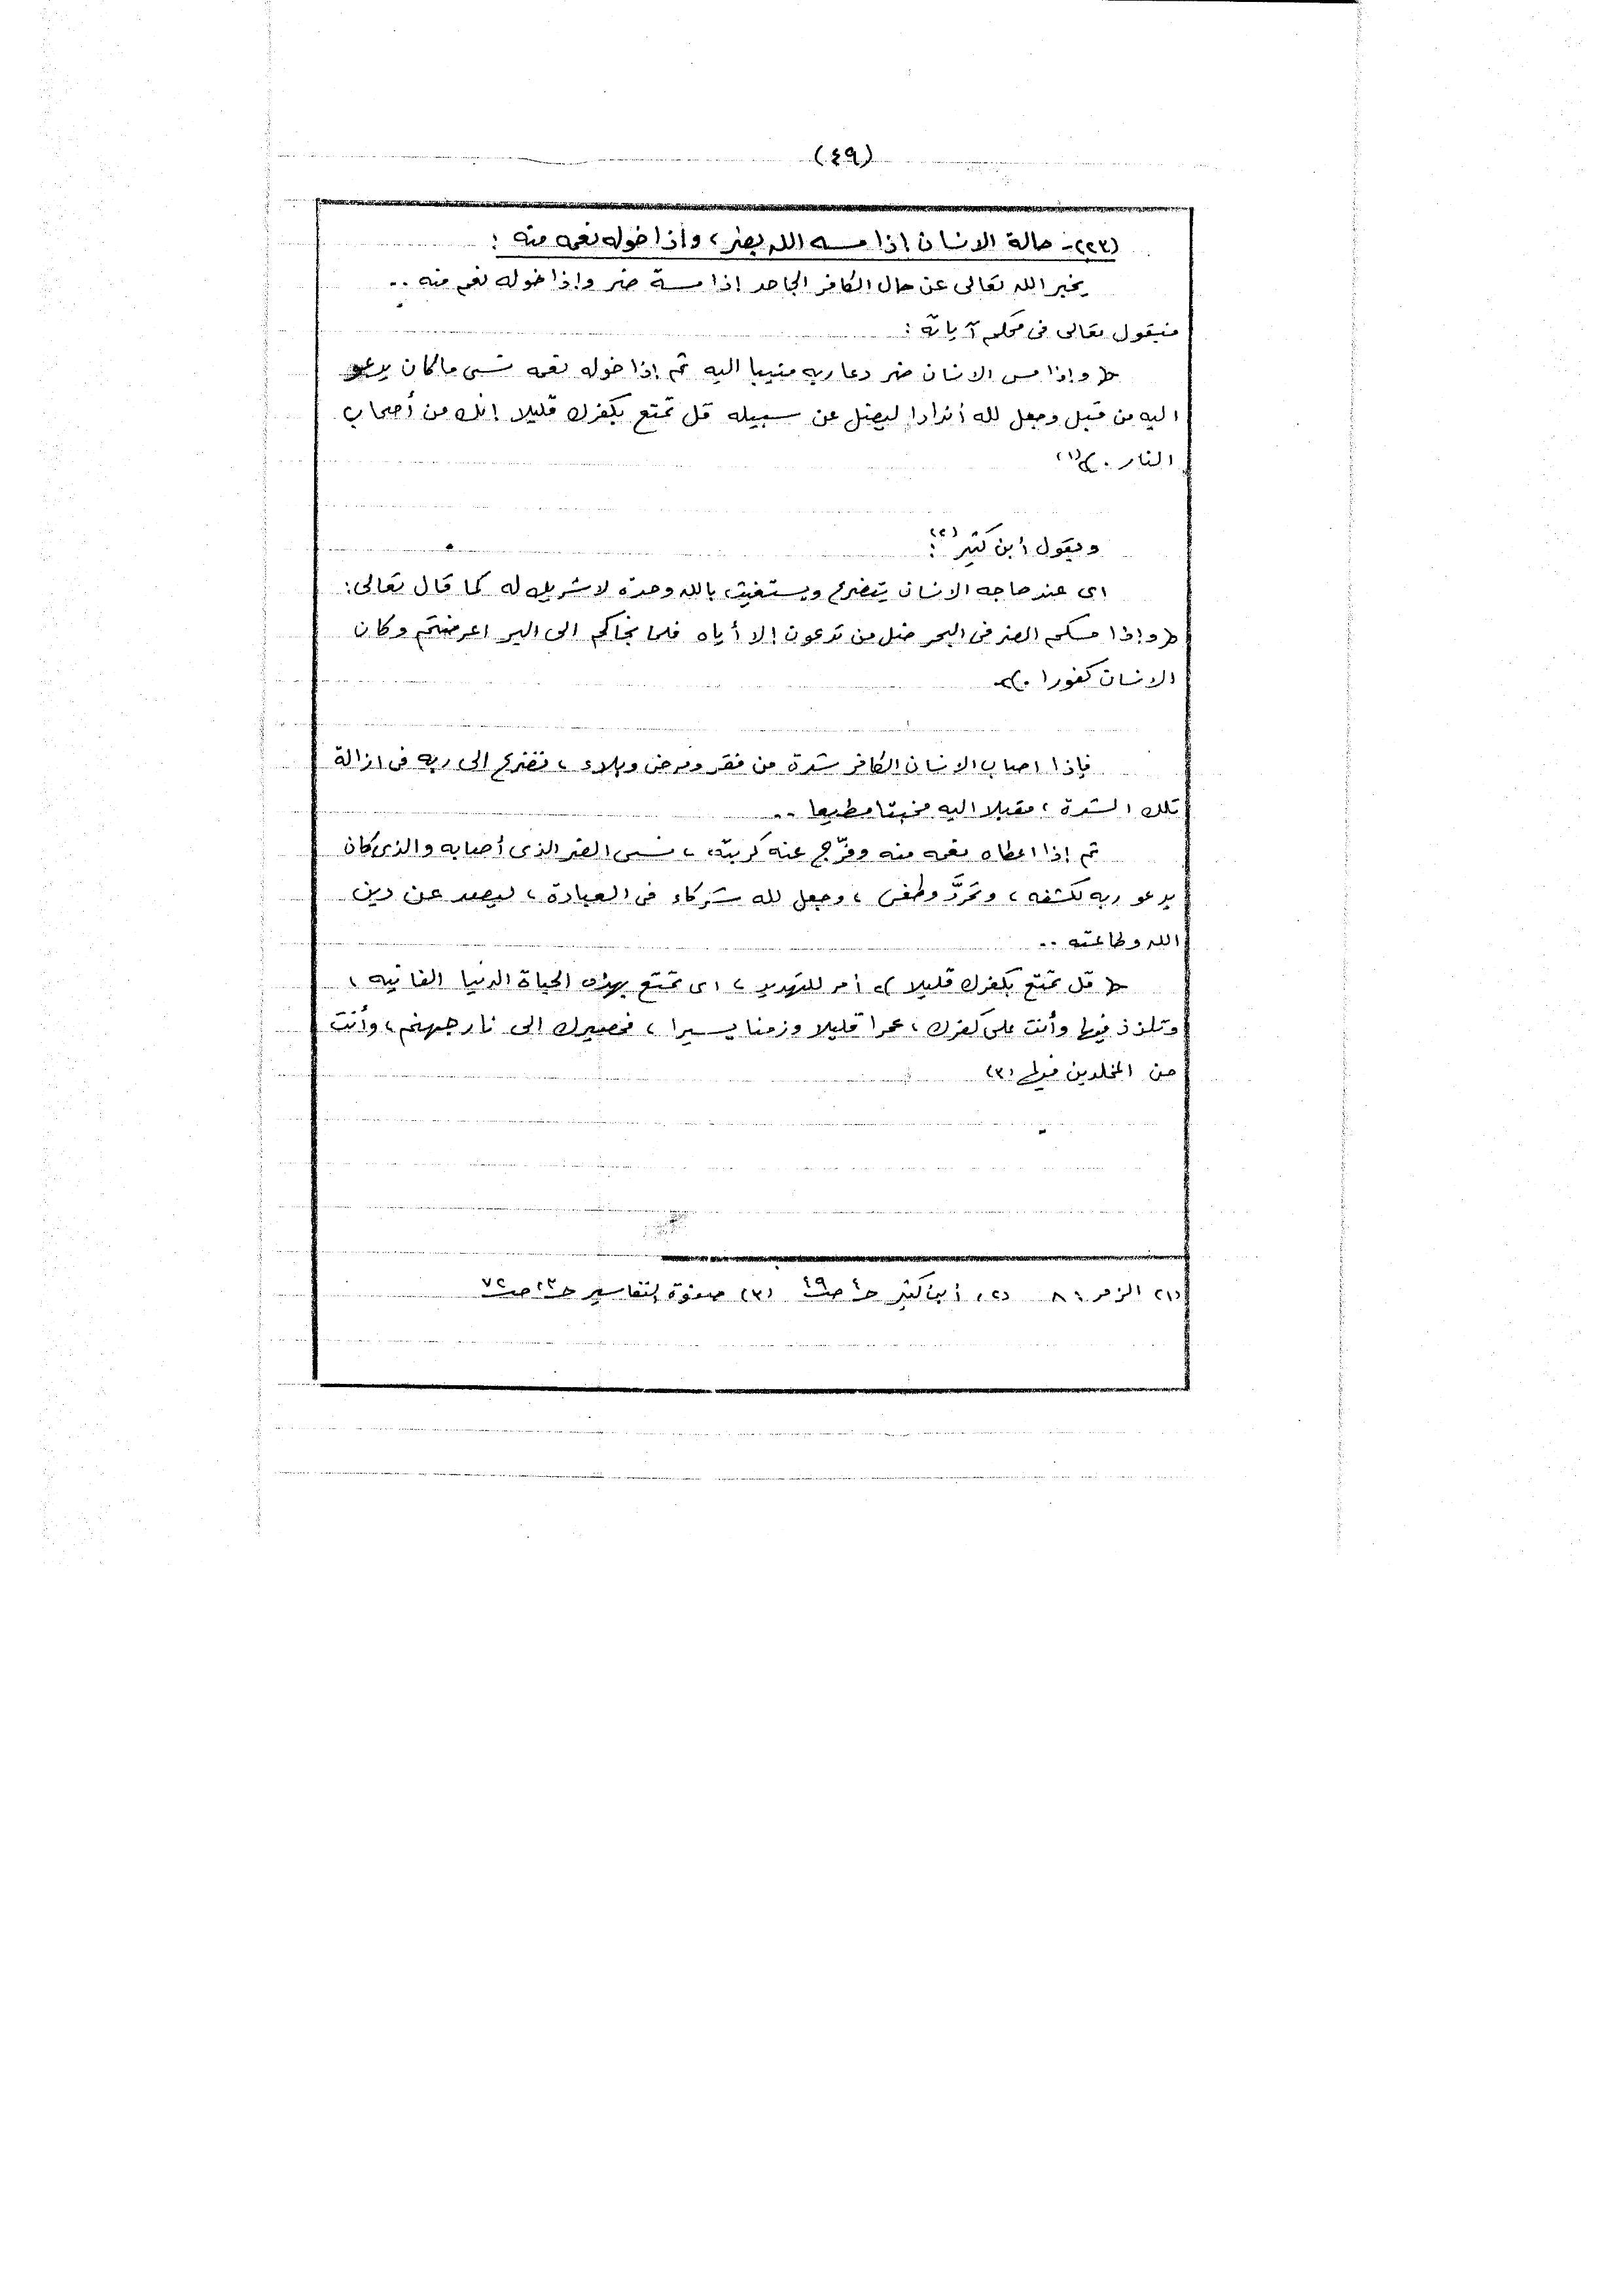 (٤٩)
(٢٢٣)- حالة الانسان إذا مسه الله بضر، وأذا خوله نعمه منه :
يخبر الله تعالى عن حال الكافر الجاحد إذا مسة ضر وإذا خوله نعم منه ..
فيقول تعالى فى محكم آياتة :
﴿ وإذا مس الانسان ضر دعا ربه منيبا اليه ثم إذا خوله نعمه نسى ما كان يدعو
اليه من قبل وجعل لله أندادا ليضل عن سبيله قل تمتع بكفرك قليلا إنك من أصحاب
النار . ﴾(١)
ويقول أبن كثير (٢) :
اى عند حاجه الانسان يتضرع ويستغيث بالله وحدة لا شريك له كما قال تعالى :
﴿ وإذا مسكم الضر فى البحر ضل من تدعون إلا أياه فلما نجاكم الى البر اعرضتم وكان
الانسان كفورا . ﴾
فإذا اصاب الانسان الكافر شدة من فقر ومرض وبلاء ، تضرع الى ربه فى ازالة
تلك الشدة ، مقبلا اليه مخبتا مطيعا ..
ثم إذا اعطاه نعمه منه وفرّج عنه كربتة ، نسى الضر الذى أصابه والذى كان
يدعو ربه لكشفه ، وتمرَّد وطغى ، وجعل لله شركاء فى العبادة ، ليصد عن دين
الله وطاعته ..
﴿ قل تمتع بكفرك قليلا ﴾ أمر للتهديد ، اى تمتع بهذه الحياة الدنيا الفانيه ،
وتلذذ فيها وأنت على كفرك ، عمرا قليلا وزمنا يسيرا ، فمصيرك الى نار جهنم ، وأنت
من المخلدين فيها (٣)
(١) الزمر : ٨ (٢) أبن كثير ح٤ ص٤٩ (٣) صفوة التفاسير ح٣ ص٧٢